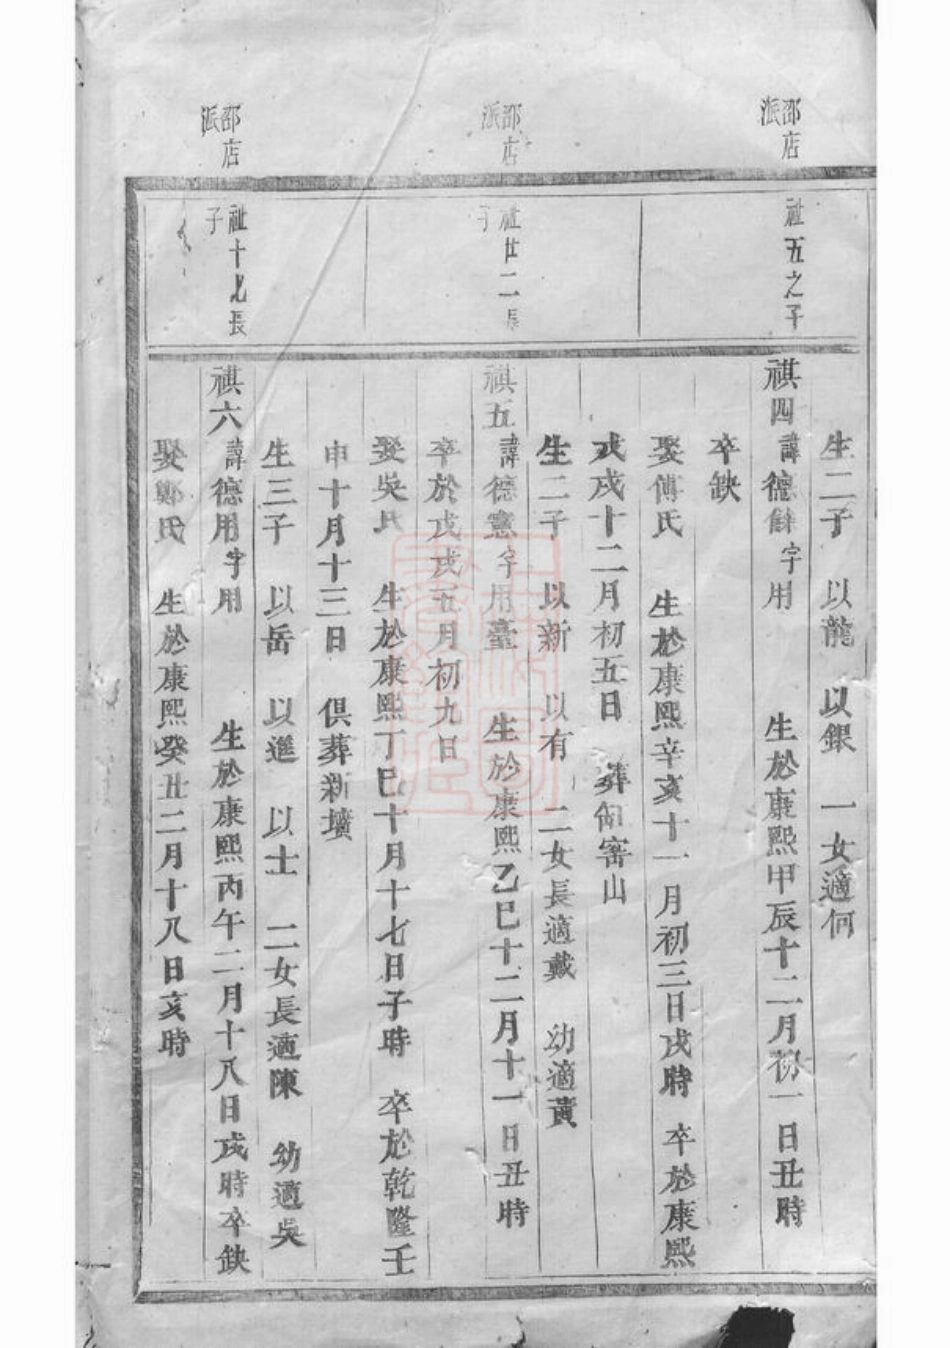 邵店
派
祉五之子
生二子 以龍 以銀 一女適何
祺四諱德 字用 生於康熙甲辰十二月初一日丑時
卒缺
娶傅氏 生於康熙辛亥十一月初三日戌時 卒於康熙
戊戌十二月初五日 葬 窰山
生二子 以新 以有 二女長適戴 幼適黃
邵店
派
祉廿二長
子
祺五諱德憲字用臺 生於康熙乙巳十二月十一日丑時
卒於戊戌五月初九日
娶吳氏 生於康熙丁巳十月十七日子時 卒於乾隆壬
申十月十三日 俱葬新壙
生三子 以岳 以進 以士 二女長適陳 幼適吳
邵店
派
祉十九長
子
祺六諱德用字用 生於康熙丙午二月十八日戌時卒缺
娶鄭氏 生於康熙癸丑二月十八日亥時